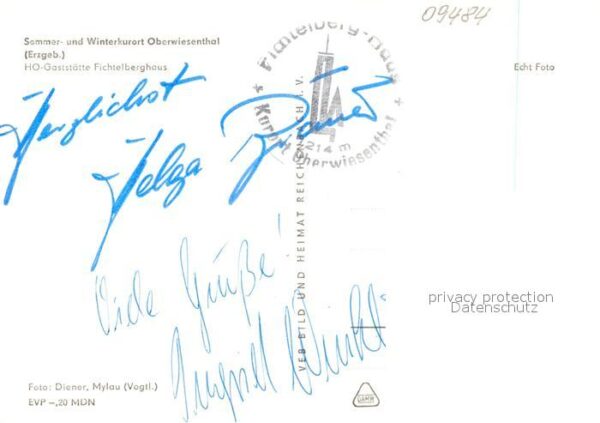 09484
Sommer- und Winterkurort Oberwiesenthal
(Erzgeb.)
HO-Gaststätte Fichtelberghaus
Echt Foto
Fichtelberg-Haus
1214 m
* Kurort Oberwiesenthal *
Herzlichst
Helga
VEB BILD UND HEIMAT REICHENBACH I. V.
Viele Grüße!
privacy protection
Datenschutz
Foto: Diener, Mylau (Vogtl.)
EVP –,20 MDN